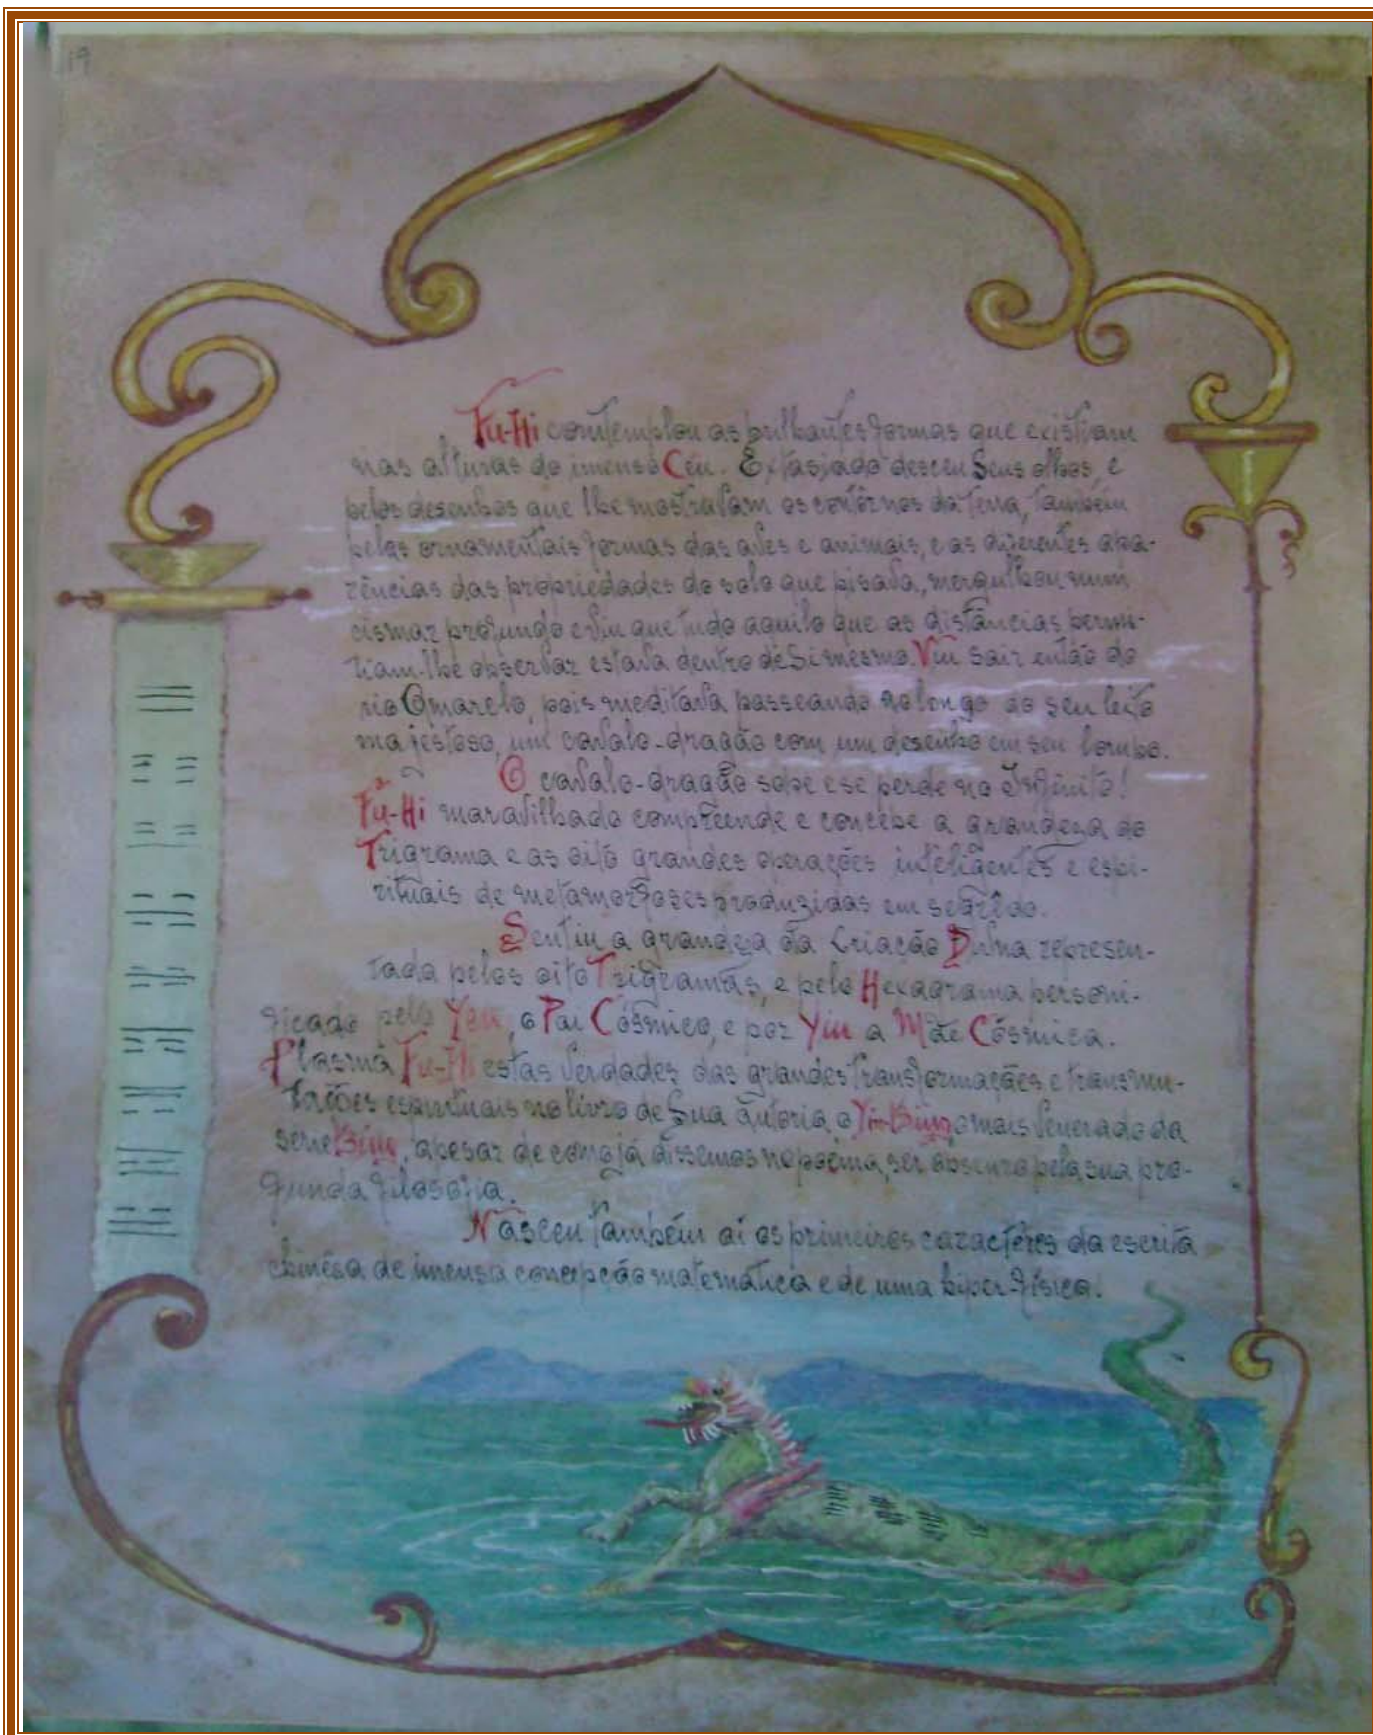 19
Fu-Hi comtemplou as brilhantes formas que existiam
nas alturas do imenso Céu. Extasiado desceu Seus olhos, e
pelos desenhos que lhe mostravam os contôrnos da terra, também
pelas ornamentais formas das aves e animais, e as diferentes apa-
rências das propriedades do solo que pisava, mergulhou num
cismar profundo e viu que tudo aquilo que as distâncias permi-
tiam-lhe observar estava dentro de Si mesmo. Viu sair então do
rio Amarelo, pois meditava passeando ao longo do seu leito
majestoso, um cavalo-dragão com um desenho em seu lombo.
O cavalo-dragão sobe e se perde no Infinito!
Fu-Hi maravilhado compreende e concebe a grandeza do
Trigrama e as oito grandes operações inteligentes e espi-
rituais de metamorfoses produzidas em segrêdo.
Sentiu a grandeza da Criação Divina represen-
tada pelos oito Trigramas, e pelo Hexagrama personi-
ficado pelo Yen, o Pai Cósmico, e por Yin a Mãe Cósmica.
Plasma Fu-Hi estas verdades das grandes transformações e transmu-
tações espirituais no livro de Sua autoria, o Yi-King o mais venerado da
serie King, apesar de como já dissemos no poema, ser obscuro pela sua pro-
funda filosofia.
Nasceu também aí os primeiros caractéres da escrita
chinêsa de imensa concepção matemática e de uma hiper-física.